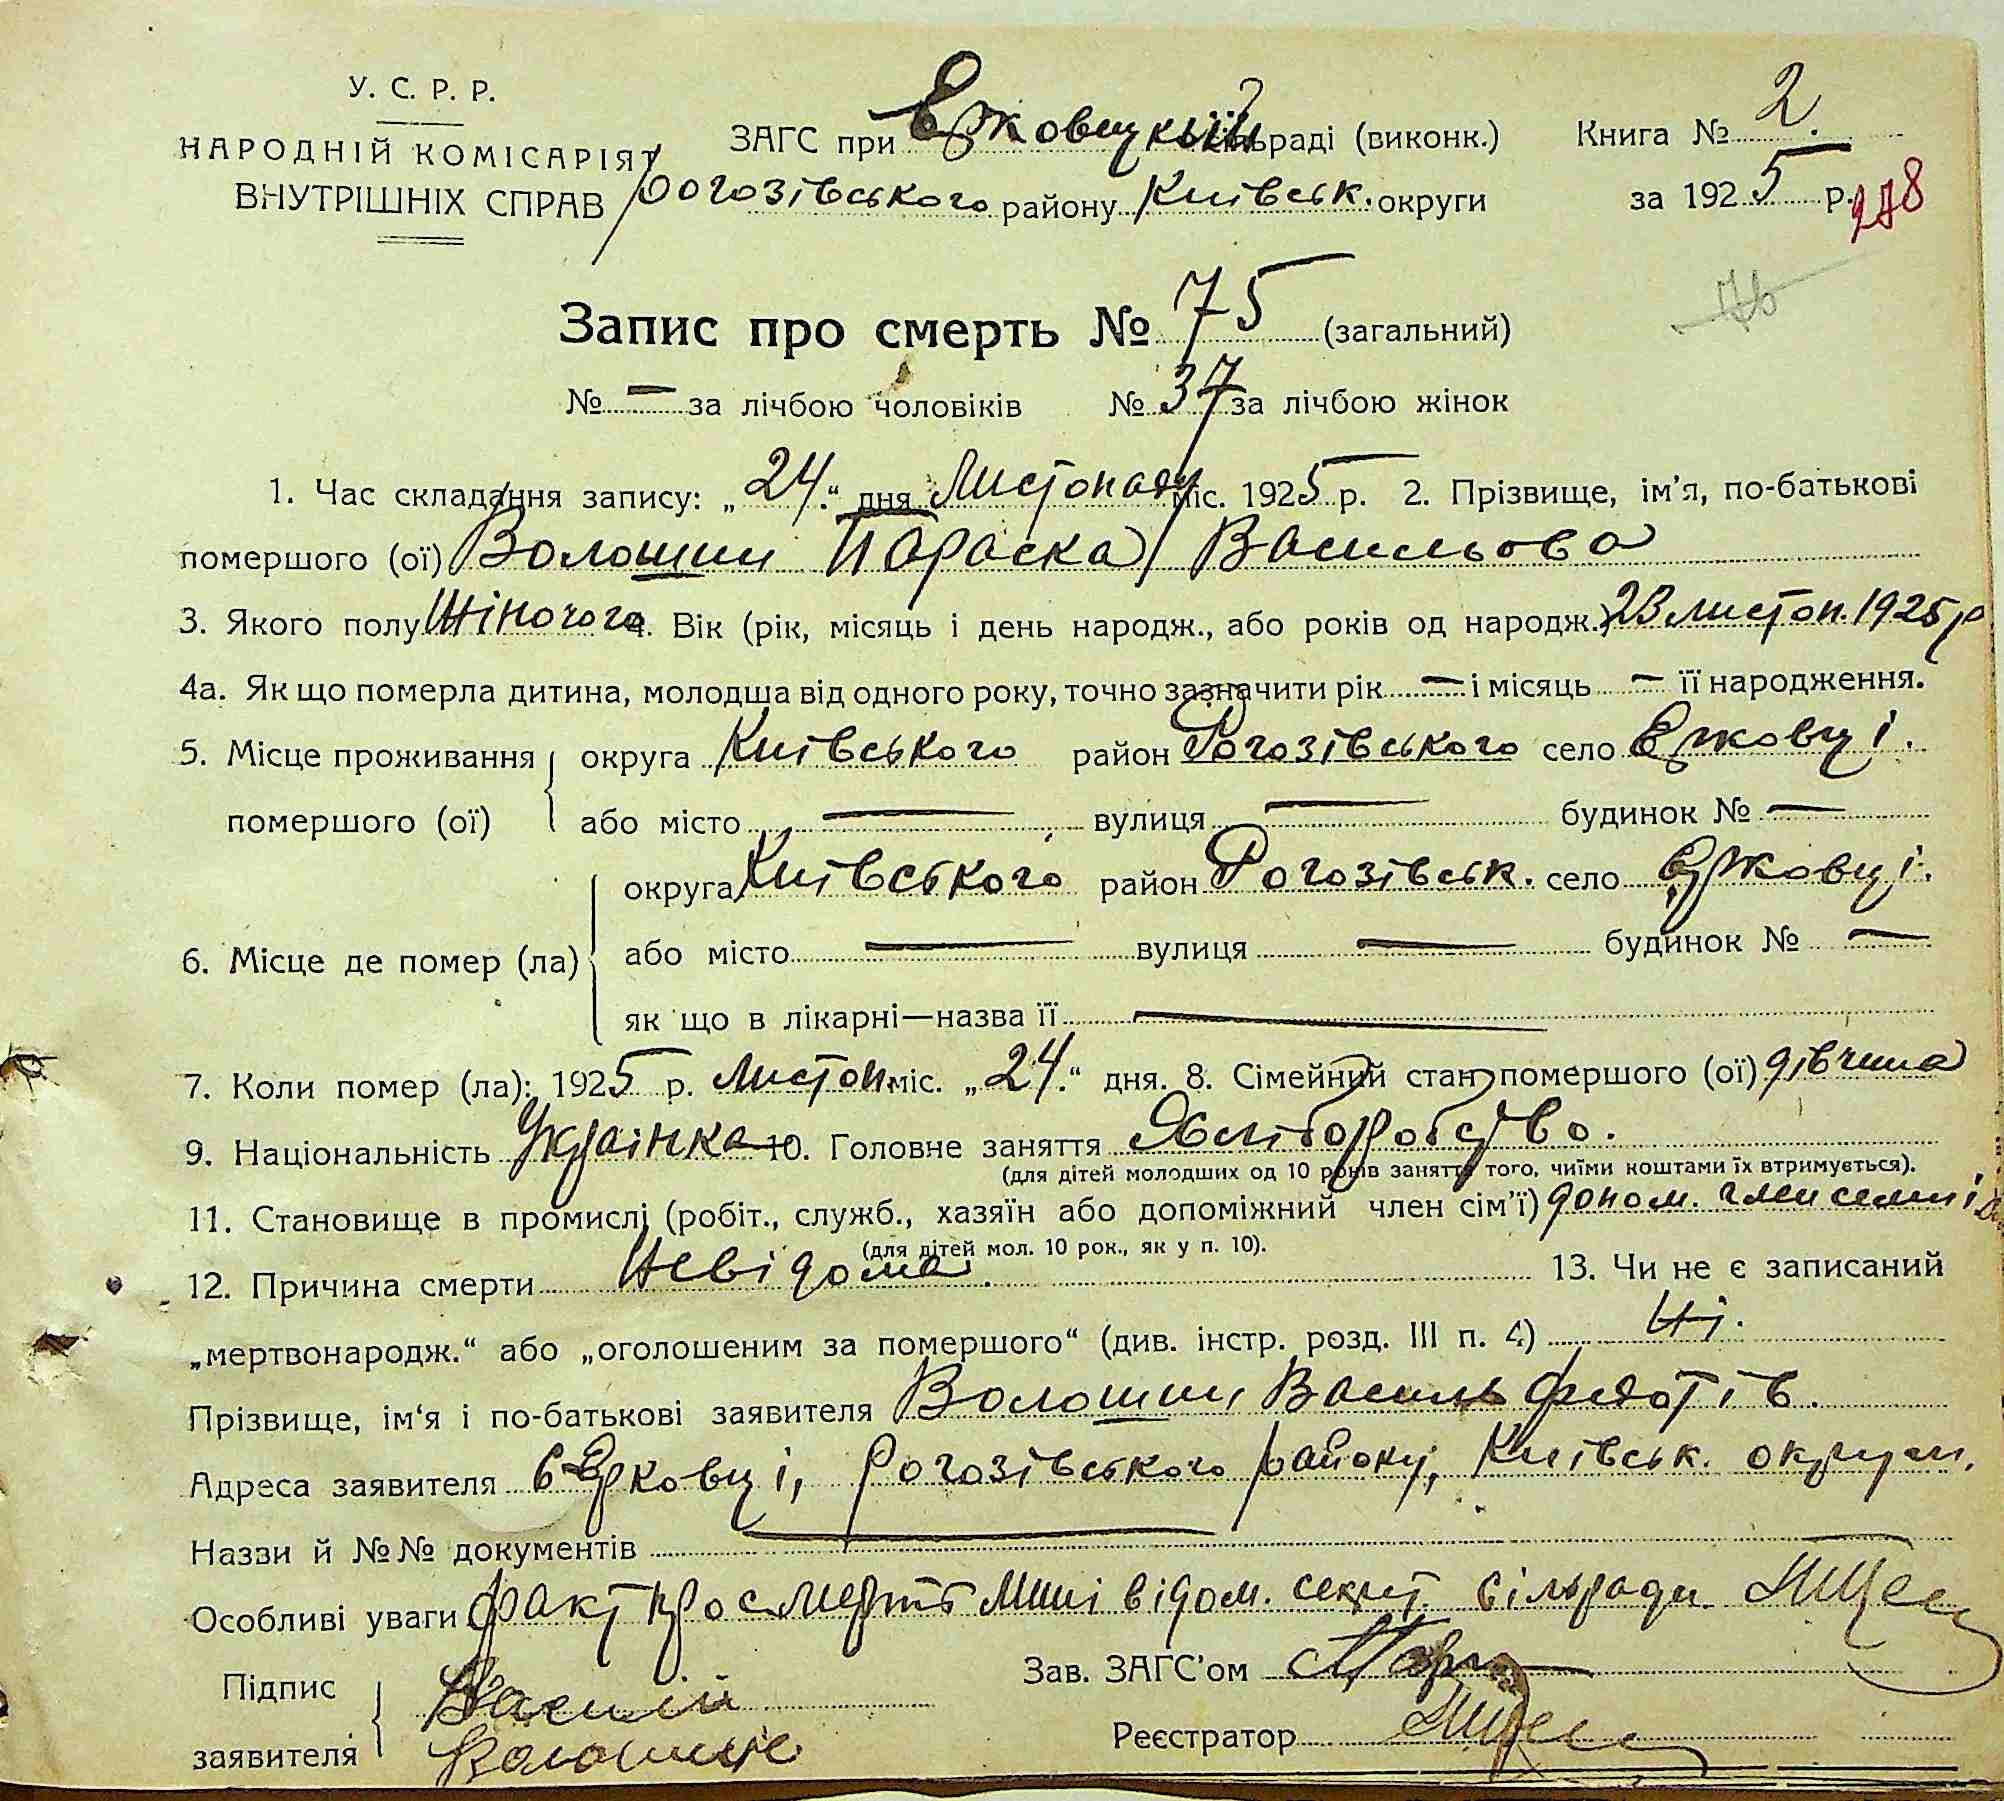 У. С. Р. Р.
НАРОДНІЙ КОМІСАРІЯТ
ВНУТРІШНІХ СПРАВ
ЗАГС при Ерковецькій сільраді (виконк.) Книга № 2.
Рогозівського району Київськ. округи за 1925 р. 278
Запис про смерть № 75 (загальний)
76
№ — за лічбою чоловіків № 37 за лічбою жінок
1. Час складання запису: „24.“ дня Листопаду міс. 1925 р. 2. Прізвище, ім'я, по-батькові
помершого (ої) Волошин Параска Васильова
3. Якого полу Жіночого 4. Вік (рік, місяць і день народж., або років од народж.) 23 листоп. 1925 р
4а. Як що померла дитина, молодша від одного року, точно зазначити рік — і місяць — її народження.
5. Місце проживання помершого (ої) округа Київського район Рогозівського село Ерковці.
або місто — вулиця — будинок № —
6. Місце де помер (ла) округа Київського район Рогозівськ. село Ерковці.
або місто — вулиця — будинок № —
як що в лікарні—назва її —
7. Коли помер (ла): 1925 р. листоп. міс. „24.“ дня. 8. Сімейний стан помершого (ої) дівчина
9. Національність Украінка 10. Головне заняття Хліборобство.
(для дітей молодших од 10 років заняття того, чиїми коштами їх втримується).
11. Становище в промислі (робіт., служб., хазяїн або допоміжний член сім'ї) допом. член семиі
(для дітей мол. 10 рок., як у п. 10).
12. Причина смерти Невідома. 13. Чи не є записаний
„мертвонародж.“ або „оголошеним за помершого“ (див. інстр. розд. III п. 4) Ні.
Прізвище, ім'я і по-батькові заявителя Волошин Василь Федотів.
Адреса заявителя с Ерковці, Рогозівського району, Київськ. округи.
Назви й №№ документів —
Особливі уваги факт про смерть мині відом. секрет. сільради
Підпис заявителя Василій Волошин
Зав. ЗАГС'ом
Реєстратор